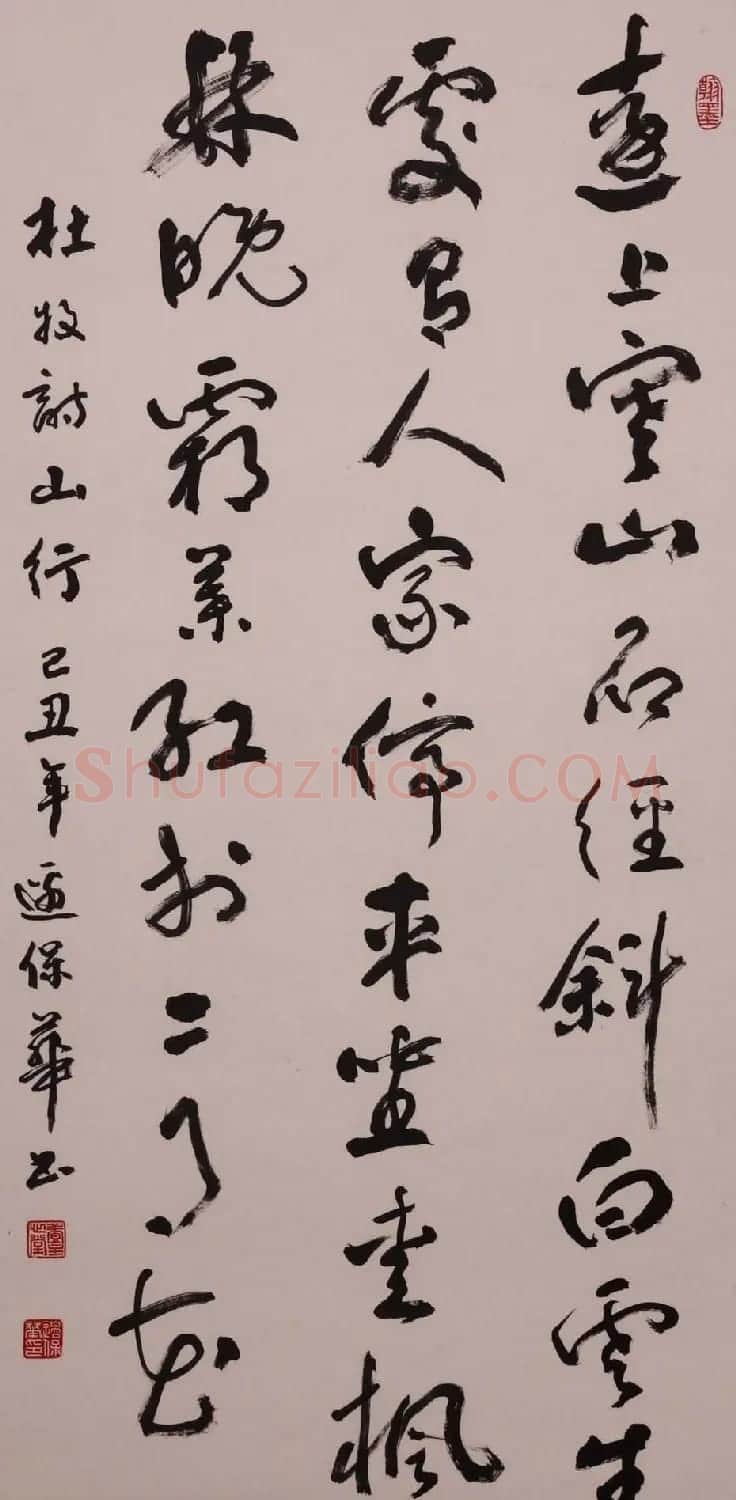 翰墨
遠上寒山石徑斜白雲生
處有人家停車坐愛楓
林晚霜葉紅於二月花
杜牧詩山行己丑年邊保華書
Shufaziliao.COM